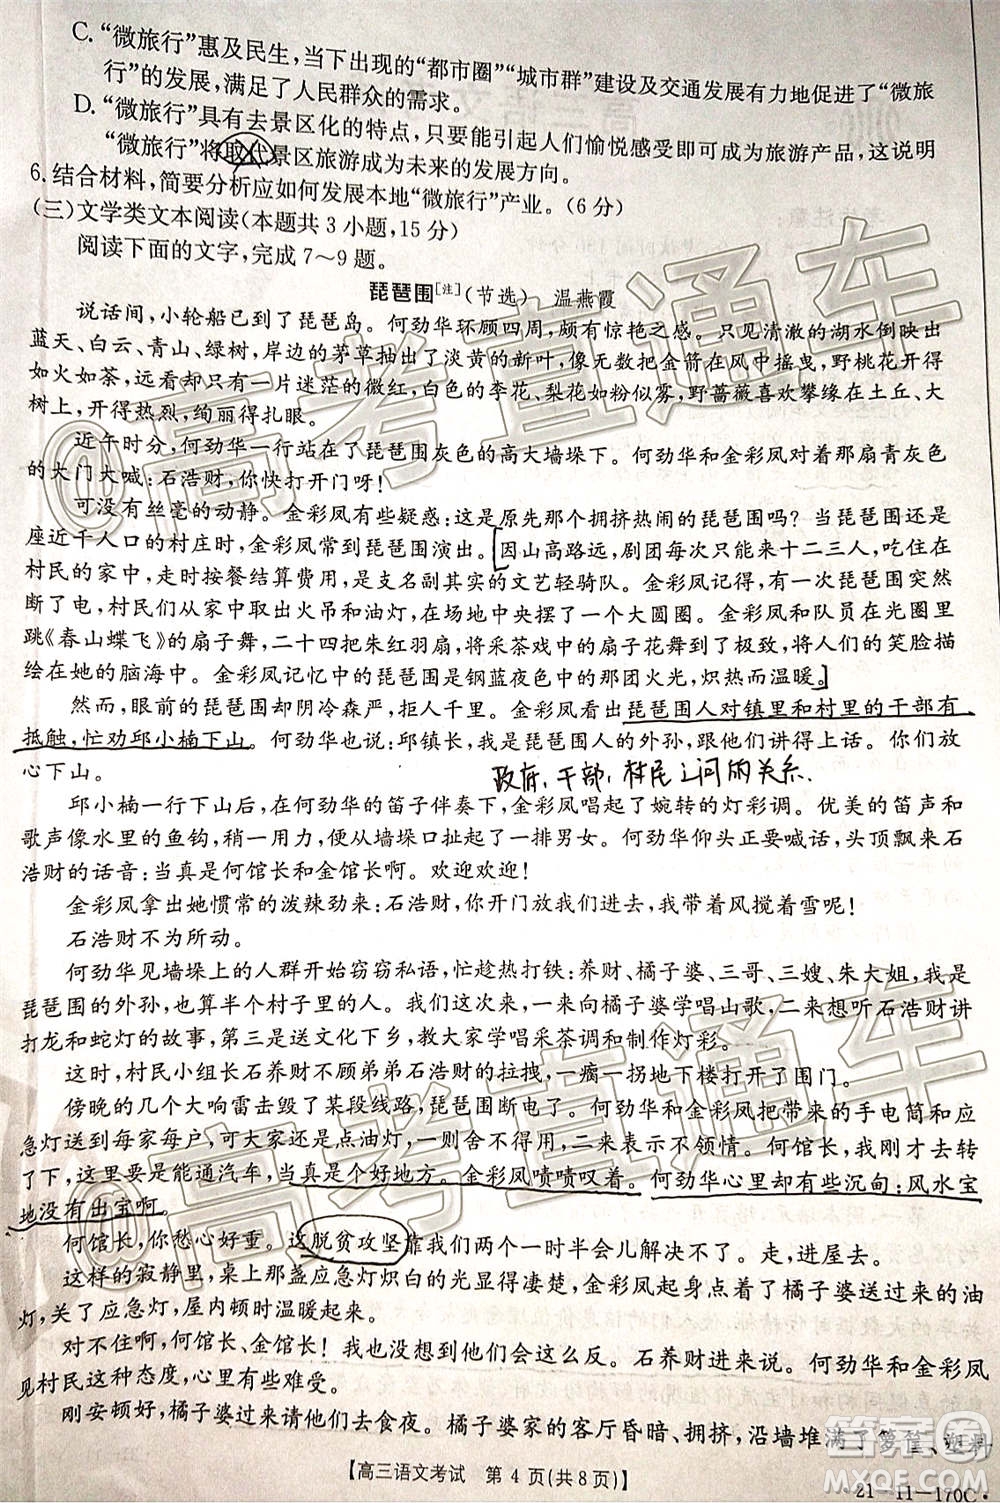 C.“微旅行”惠及民生,当下出现的“都市圈”“城市群”建设及交通发展有力地促进了“微旅
行”的发展,满足了人民群众的需求。
D.“微旅行”具有去景区化的特点,只要能引起人们愉悦感受即可成为旅游产品,这说明
“微旅行”将取代景区旅游成为未来的发展方向。
6.结合材料,简要分析应如何发展本地“微旅行”产业。(6分)
(三)文学类文本阅读(本题共3小题,15分)
阅读下面的文字,完成7~9题。
琵琶围[注](节选) 温燕霞
说话间,小轮船已到了琵琶岛。何劲华环顾四周,颇有惊艳之感。只见清澈的湖水倒映出
蓝天、白云、青山、绿树,岸边的茅草抽出了淡黄的新叶,像无数把金箭在风中摇曳,野桃花开得
如火如荼,远看却只有一片迷茫的微红,白色的李花、梨花如粉似雾,野蔷薇喜欢攀缘在土丘、大
树上,开得热烈,绚丽得扎眼。
近午时分,何劲华一行站在了琵琶围灰色的高大墙垛下。何劲华和金彩凤对着那扇青灰色
的大门大喊:石浩财,你快打开门呀!
可没有丝毫的动静。金彩凤有些疑惑:这是原先那个拥挤热闹的琵琶围吗?当琵琶围还是
座近千人口的村庄时,金彩凤常到琵琶围演出。因山高路远,剧团每次只来十二三人,吃住都在
村民的家中,走时按餐结算费用,是支名副其实的文艺轻骑队。金彩凤记得,有一次琵琶围突然
断了电,村民们从家中取出火吊和油灯,在场地中央摆了一个大圆圈。金彩凤和队员在光圈里
跳《春山蝶飞》的扇子舞,二十四把朱红羽扇,将采茶戏中的扇子花舞到了极致,将人们的笑脸描
绘在她的脑海中。金彩凤记忆中的琵琶围是钢蓝夜色中的那团火光,炽热而温暖。
然而,眼前的琵琶围却阴冷森严,拒人千里。金彩凤看出琵琶围人对镇里和村里的干部有
抵触,忙劝邱小楠下山。何劲华也说:邱镇长,我是琵琶围人的外孙,跟他们讲得上话。你们放
心下山。
政府、干部、村民之间的关系
邱小楠一行下山后,在何劲华的笛子伴奏下,金彩凤唱起了婉转的灯彩调。优美的笛声和
歌声像水里的鱼钩,稍一用力,便从墙垛口扯起了一排男女。何劲华仰头正要喊话,头顶飘来石
浩财的话音:当真是何馆长和金馆长啊。欢迎欢迎!
金彩凤拿出她惯常的泼辣劲来:石浩财,你开下门放我们进去,我两腿的风搅着雪呢!
石浩财不为所动。
何劲华见墙垛上的人群开始窃窃私语,忙趁热打铁:养财、橘子婆、三哥、三嫂、朱大姐,我是
琵琶围的外孙,也算半个村子里的人。我们这次来,一来向橘子婆学唱山歌,二来想听石浩财讲
打龙和蛇灯的故事,第三是送文化下乡,教大家学唱采茶调和制作灯彩。
这时,村民小组长石养财不顾弟弟石浩财的阻拦,一瘸一拐地下楼打开了围门。
傍晚的几个大响雷击毁了某段线路,琵琶围断电了。何劲华和金彩凤把带来的手电筒和应
急灯送到每家每户,可大家还是点油灯,一则舍不得用,二来表示不领情。何馆长,今年秋天会战
了下,这里要是能通汽车,是个好地方。金彩凤啧啧叹着。何劲华心里却有些沉甸:风水宝
地没有出宝啊。
何馆长,你愁心好重。这脱贫攻坚靠我们两个一时半会儿解决不了。走,进屋去。
这样的寂静里,桌上那盏应急灯炽白的光显得凄楚,金彩凤起身点上了橘子婆送来的油
灯,关了应急灯,屋内顿时温暖起来。
对不住啊,何馆长、金馆长!我也没想到他们会这么反。石养财进来说。何劲华和金彩凤
见村民这种态度,心里有些难受。
刚安顿好,橘子婆来请他们去食夜。橘子婆家的客厅昏暗、拥挤,沿墙堆满了箩筐、塑料
【高三语文考试 第4页(共8页)】
·21-11-170C·
@高考直通车
@高考直通车
答案圈